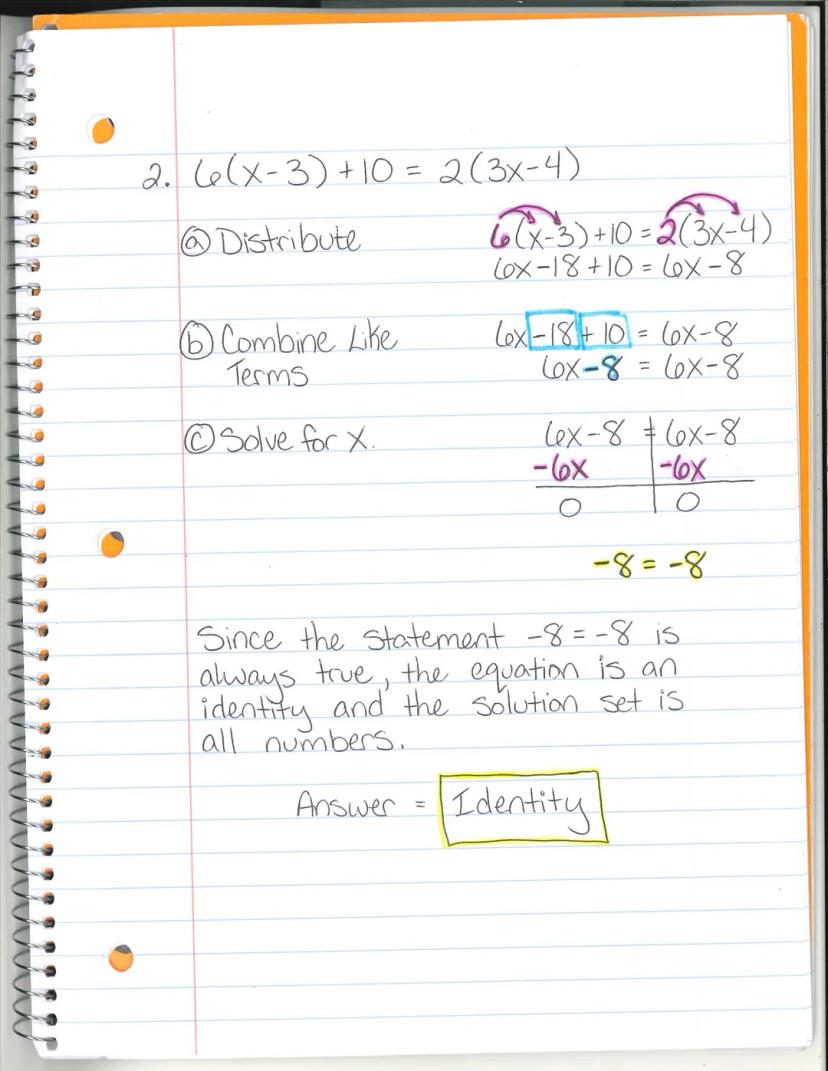 2. 6(x-3)+10 = 2(3x-4)
ⓐ Distribute
6(x-3)+10 = 2(3x-4)
6x-18+10 = 6x-8
ⓑ Combine Like
Terms
6x-18+10 = 6x-8
6x-8 = 6x-8
ⓒ Solve for X.
6x-8 = 6x-8
-6x -6x
0 0
-8 = -8
Since the statement -8=-8 is
always true, the equation is an
identity and the solution set is
all numbers.
Answer = Identity